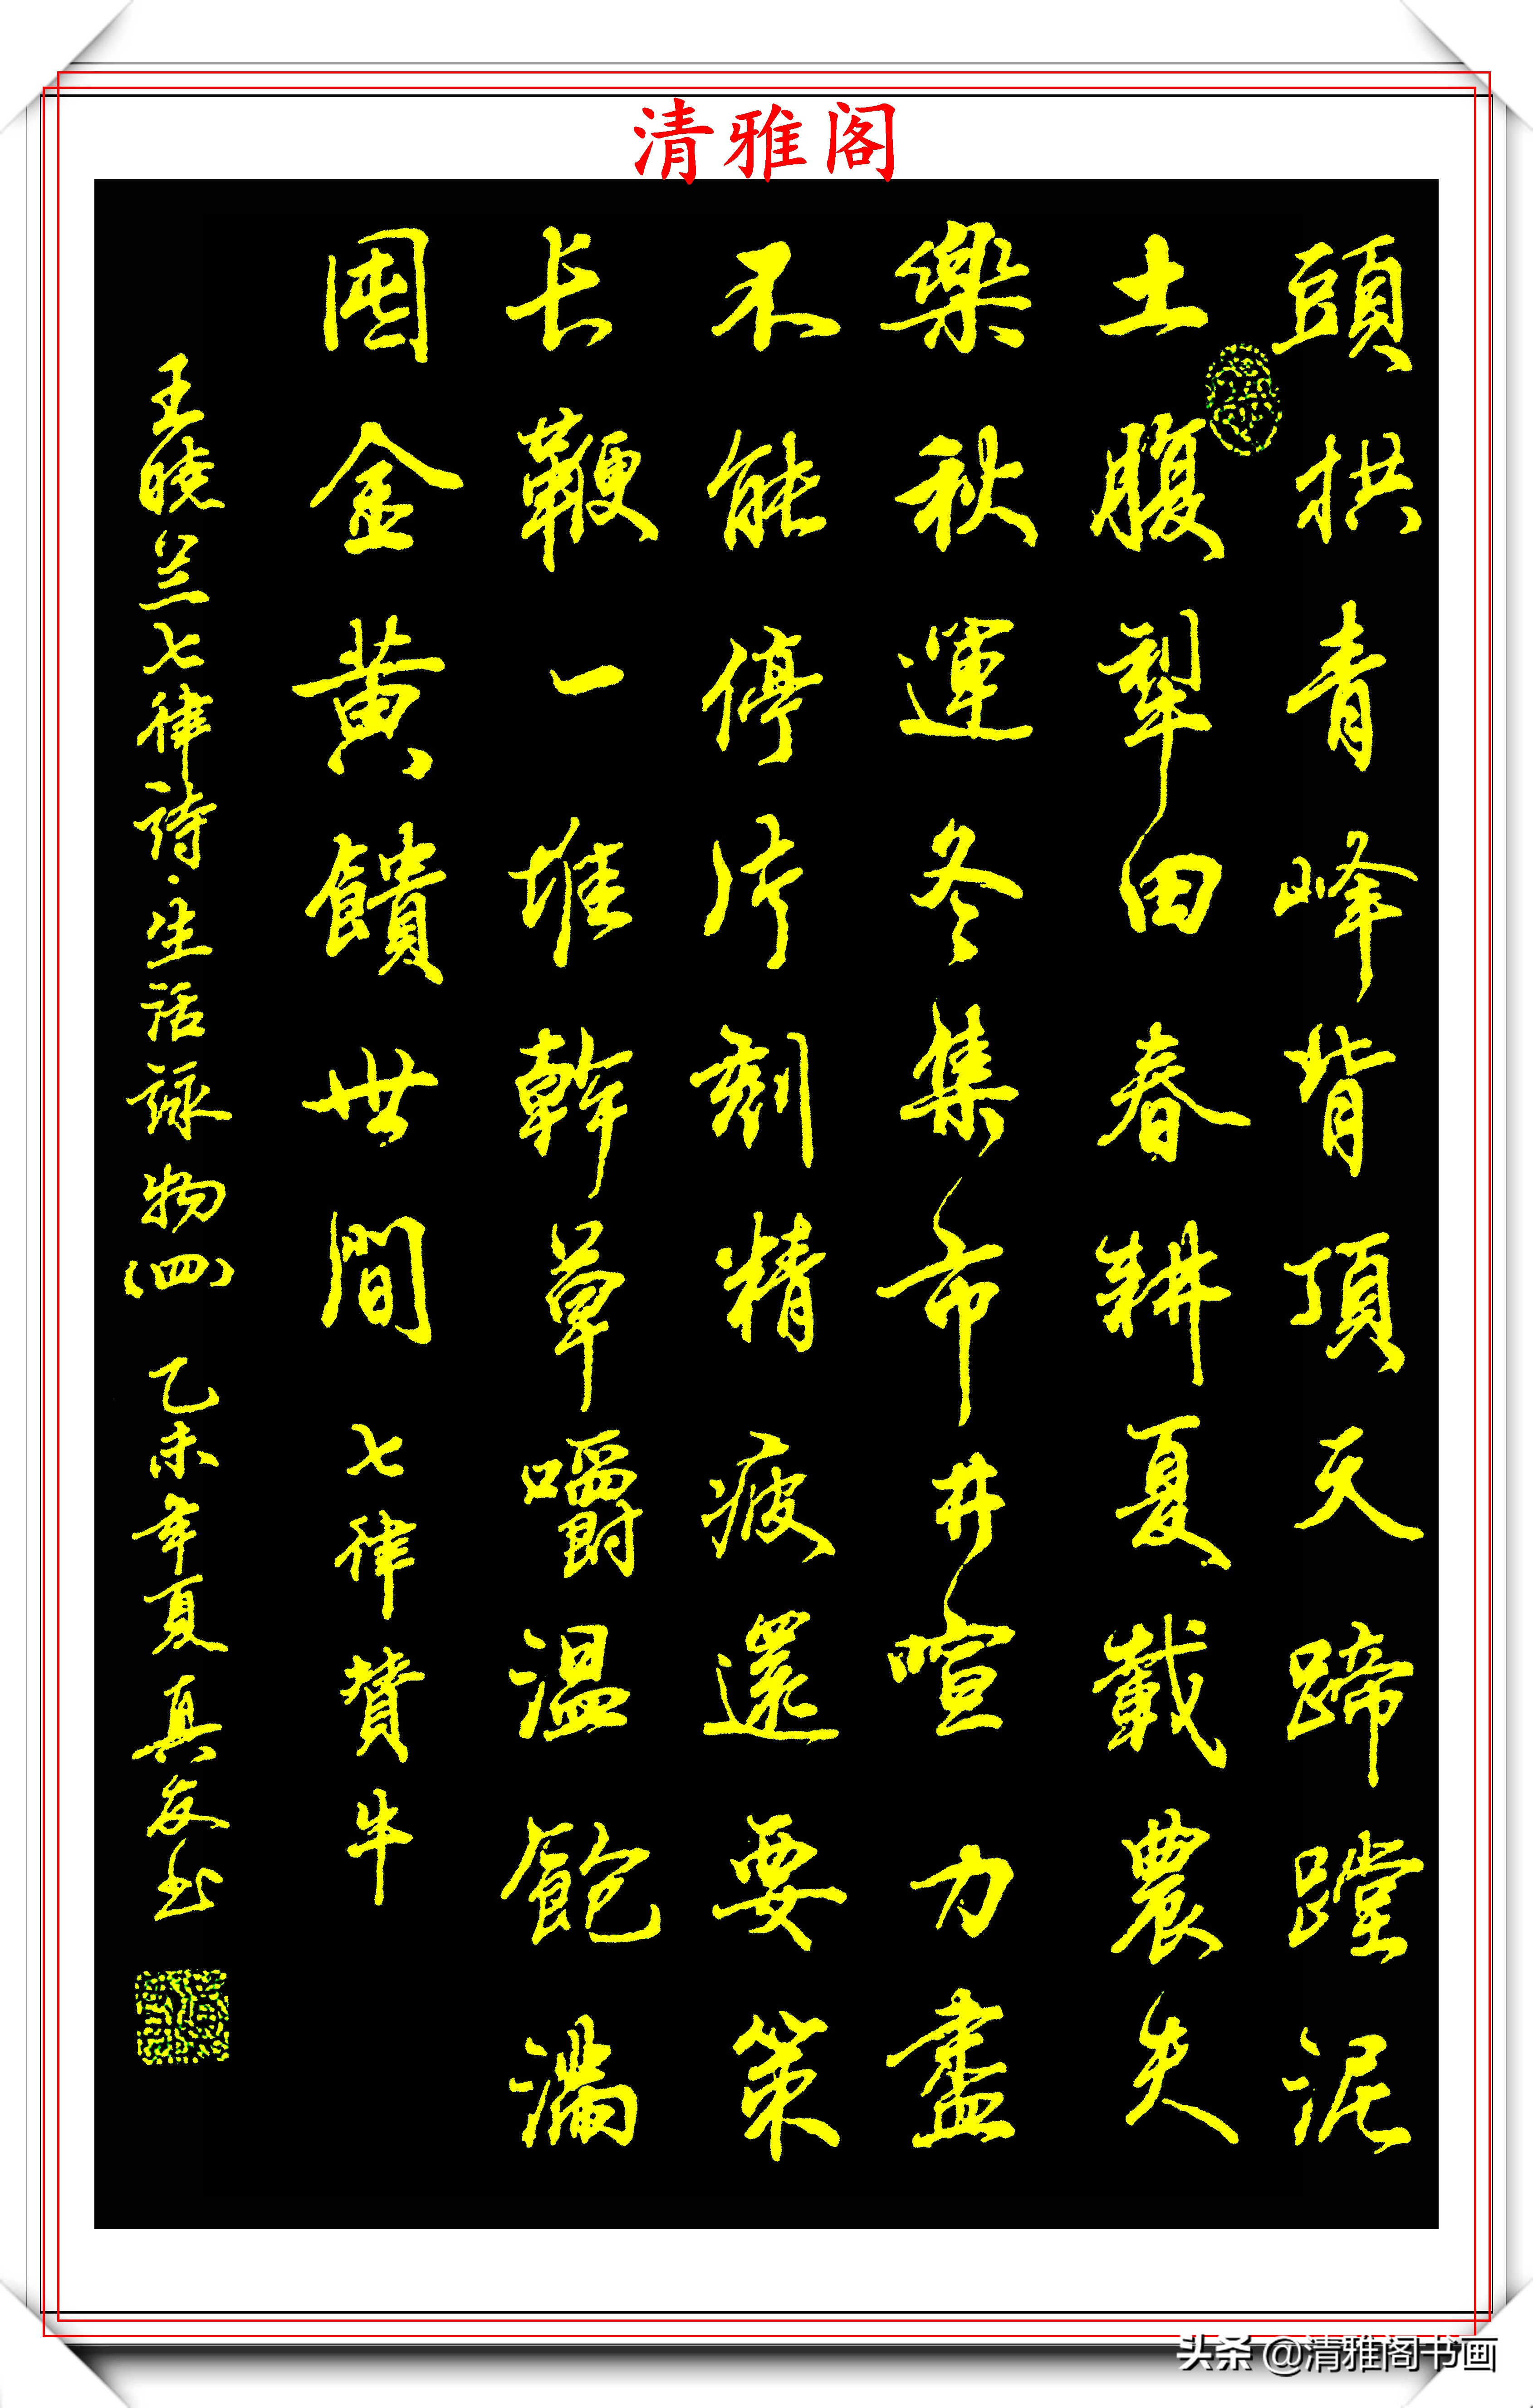 清雅阁
頭拱青峰背頂天蹄蹚泥
土腹犁田春耕夏載農夫
樂秋運冬集市井喧力盡
不能停片刻精疲還要策
长鞭一堆幹草嚼溫飽滿
囤金黄饋世間七律贊牛
王曉兰七律詩·生活詠物(四) 乙未年夏真友书
头条 @清雅阁书画